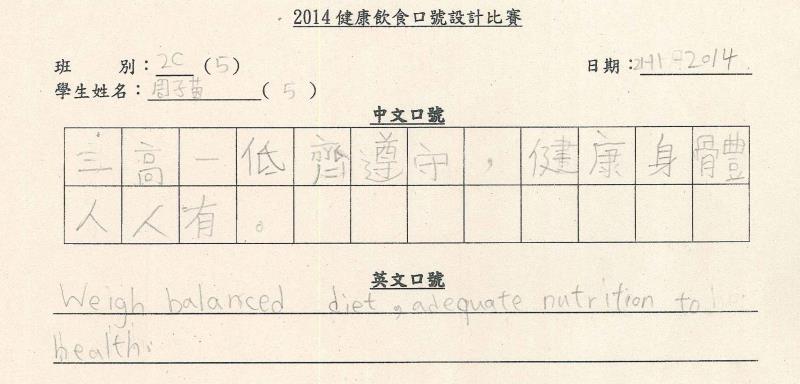 2014健康飲食口號設計比賽
班 別：2C (5) 日期：2014
學生姓名：周子 ( 5 )
中文口號
三高一低齊遵守，健康身體
人人有。
英文口號
Weigh balanced diet, adequate nutrition to
health.